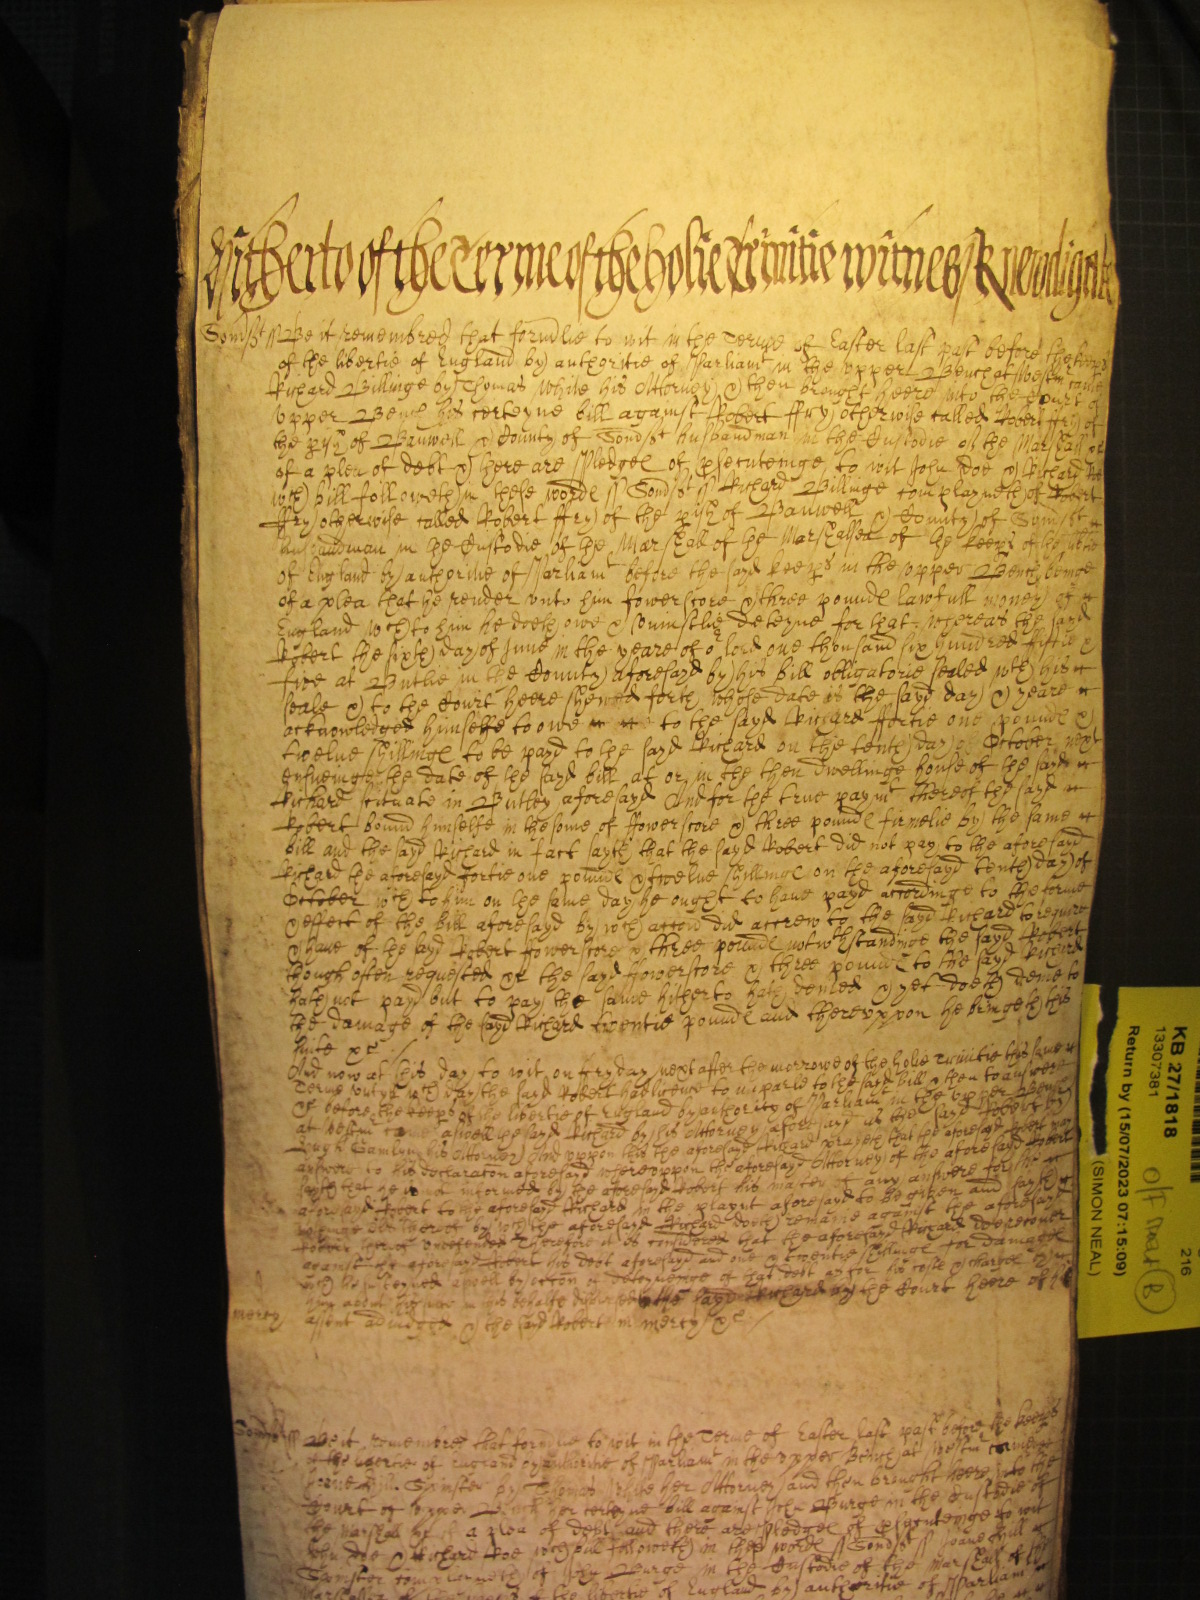 Hitherto of the Terme of the Holie Trinitie witnes R Newdigate
Somst ss Be it remembred that formlie to wit in the Terme of Easter last past before the keeps
of the libertie of England by authoritie of Parliamt in the upper Bench at Westmr came
Richard Billinge by Thomas White his Attorney & then brought heere into the Court of
upper Bench his certeyne bill against Robert ffry otherwise called Robert ffry of
the pish of Banwell & County of Somst husbandman in the Custodie of the Marshall &c
of a plea of debt & there are Pledges of psecuteinge to wit John Doe & Richard Roe
wch bill followeth in these words ss Somst ss Richard Billinge complayneth of Robert
ffry otherwise called Robert ffry of the pish of Banwell & County of Somst
husbandman in the Custodie of the Marshall of the Marshalsea of the keeps of the libtie
of England by authoritie of Parliamt before the sayd keeps in the upper Bench beinge
of a plea that he render unto him fowerscore & three pounds lawfull money of
England wch to him he doth owe & uniustlie deteyne for that whereas the sayd
Robert the sixth day of June in the yeare of or lord one thousand six hundred fiftie &
five at Butlie in the County aforesayd by his bill obligatorie sealed with his
seale & to the Court heere shewed forth whose date is the sayd day & yeare
acknowledged himselfe to owe to the sayd Richard ffortie one pounds &
twelve shillings to be payd to the sayd Richard on the tenth day of October next
ensueinge the date of the sayd bill at or in the then dwellinge house of the sayd
Richard scituate in Butley aforesayd And for the true paymt thereof the sayd
Robert bound himselfe in the some of ffowerscore & three pounds firmelie by the same
bill and the sayd Richard in fact sayth that the sayd Robert did not pay to the aforesaid
Richard the aforesayd fortie one pounds & twelve shillings on the aforesayd tenth day of
October wch to him on the same day he ought to have payd accordinge to the forme
& effect of the bill aforesayd by wch accon did accrew to the sayd Richard to require
& have of the sayd Robert ffowerscore & three pounds notwthstandinge the sayd Robert
though often requested &c the sayd ffowerscore & three pounds to the sayd Richard
hath not payd but to pay the same hitherto hath denied & yet doeth denie to
the damage of the sayd Richard twentie pounds and thereuppon he bringeth this
suite &c
And now at this day to wit on fryday next after the morrowe of the holie Trinitie this same
Terme untill wch day the sayd Robert had licence to imparle to the said bill & then to answere
&c before the keeps of the libertie of England by authority of Parliamt in the upper Bench
at Westmr came aswell the sayd Richard by his Attorney aforesayd as the sayd Robert by
Hugh Hamlyn his Attorney And uppon this the aforesayd Richard prayeth that the aforesayd Robert may
answere to his declaraton aforesayd whereuppon the aforesayd Attorney of the aforesayd Robert
sayth that he is not informed by the aforesayd Robert his master of any answere for the
aforesayd Robert to the aforesayd Richard in the playnt aforesayd to be given and sayth
nothinge by wch the aforesayd Richard doeth remaine against the aforesayd
Robert thereof undefended Therefore it is considered that the aforesayd Richard doe recover
against the aforesayd Robert his debt aforesayd and one & twentie shillings for damages
wch he susteyned aswell by occon of deteyneinge of that debt as for his costs & charges
by him about his suite in this behalfe to the sayd Richard by the Court heere of his
mercy assent adiudged & the said Robert in mercy &c
Somst ss Be it remembred that formlie to wit in the Terme of Easter last past before the keeps
of the libertie of England by authoritie of Parliamt in the upper Bench at Westmr came
Joane Hill Spinster by Thomas White her Attorney and then brought heere into the
Court of upper Bench her certeyne bill against John Burge in the Custodie of
the Marshall &c of a plea of debt and there are Pledges of psecuteinge to wit
John Doe & Richard Roe wch bill followeth in these words ss Somst ss Joane Hill
Spinster complayneth of John Burge in the Custodie of the Marshall of the
of the libertie of England by authoritie of Parliamt
KB 27/1818
13307381
Return by (15/07/2023 07:15:09)
(SIMON NEAL)
216
B